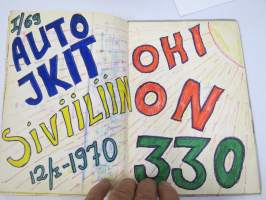 I/69
AUTO
JKIT
SIVIILIIN
12/X-1970
OHI
ON
330